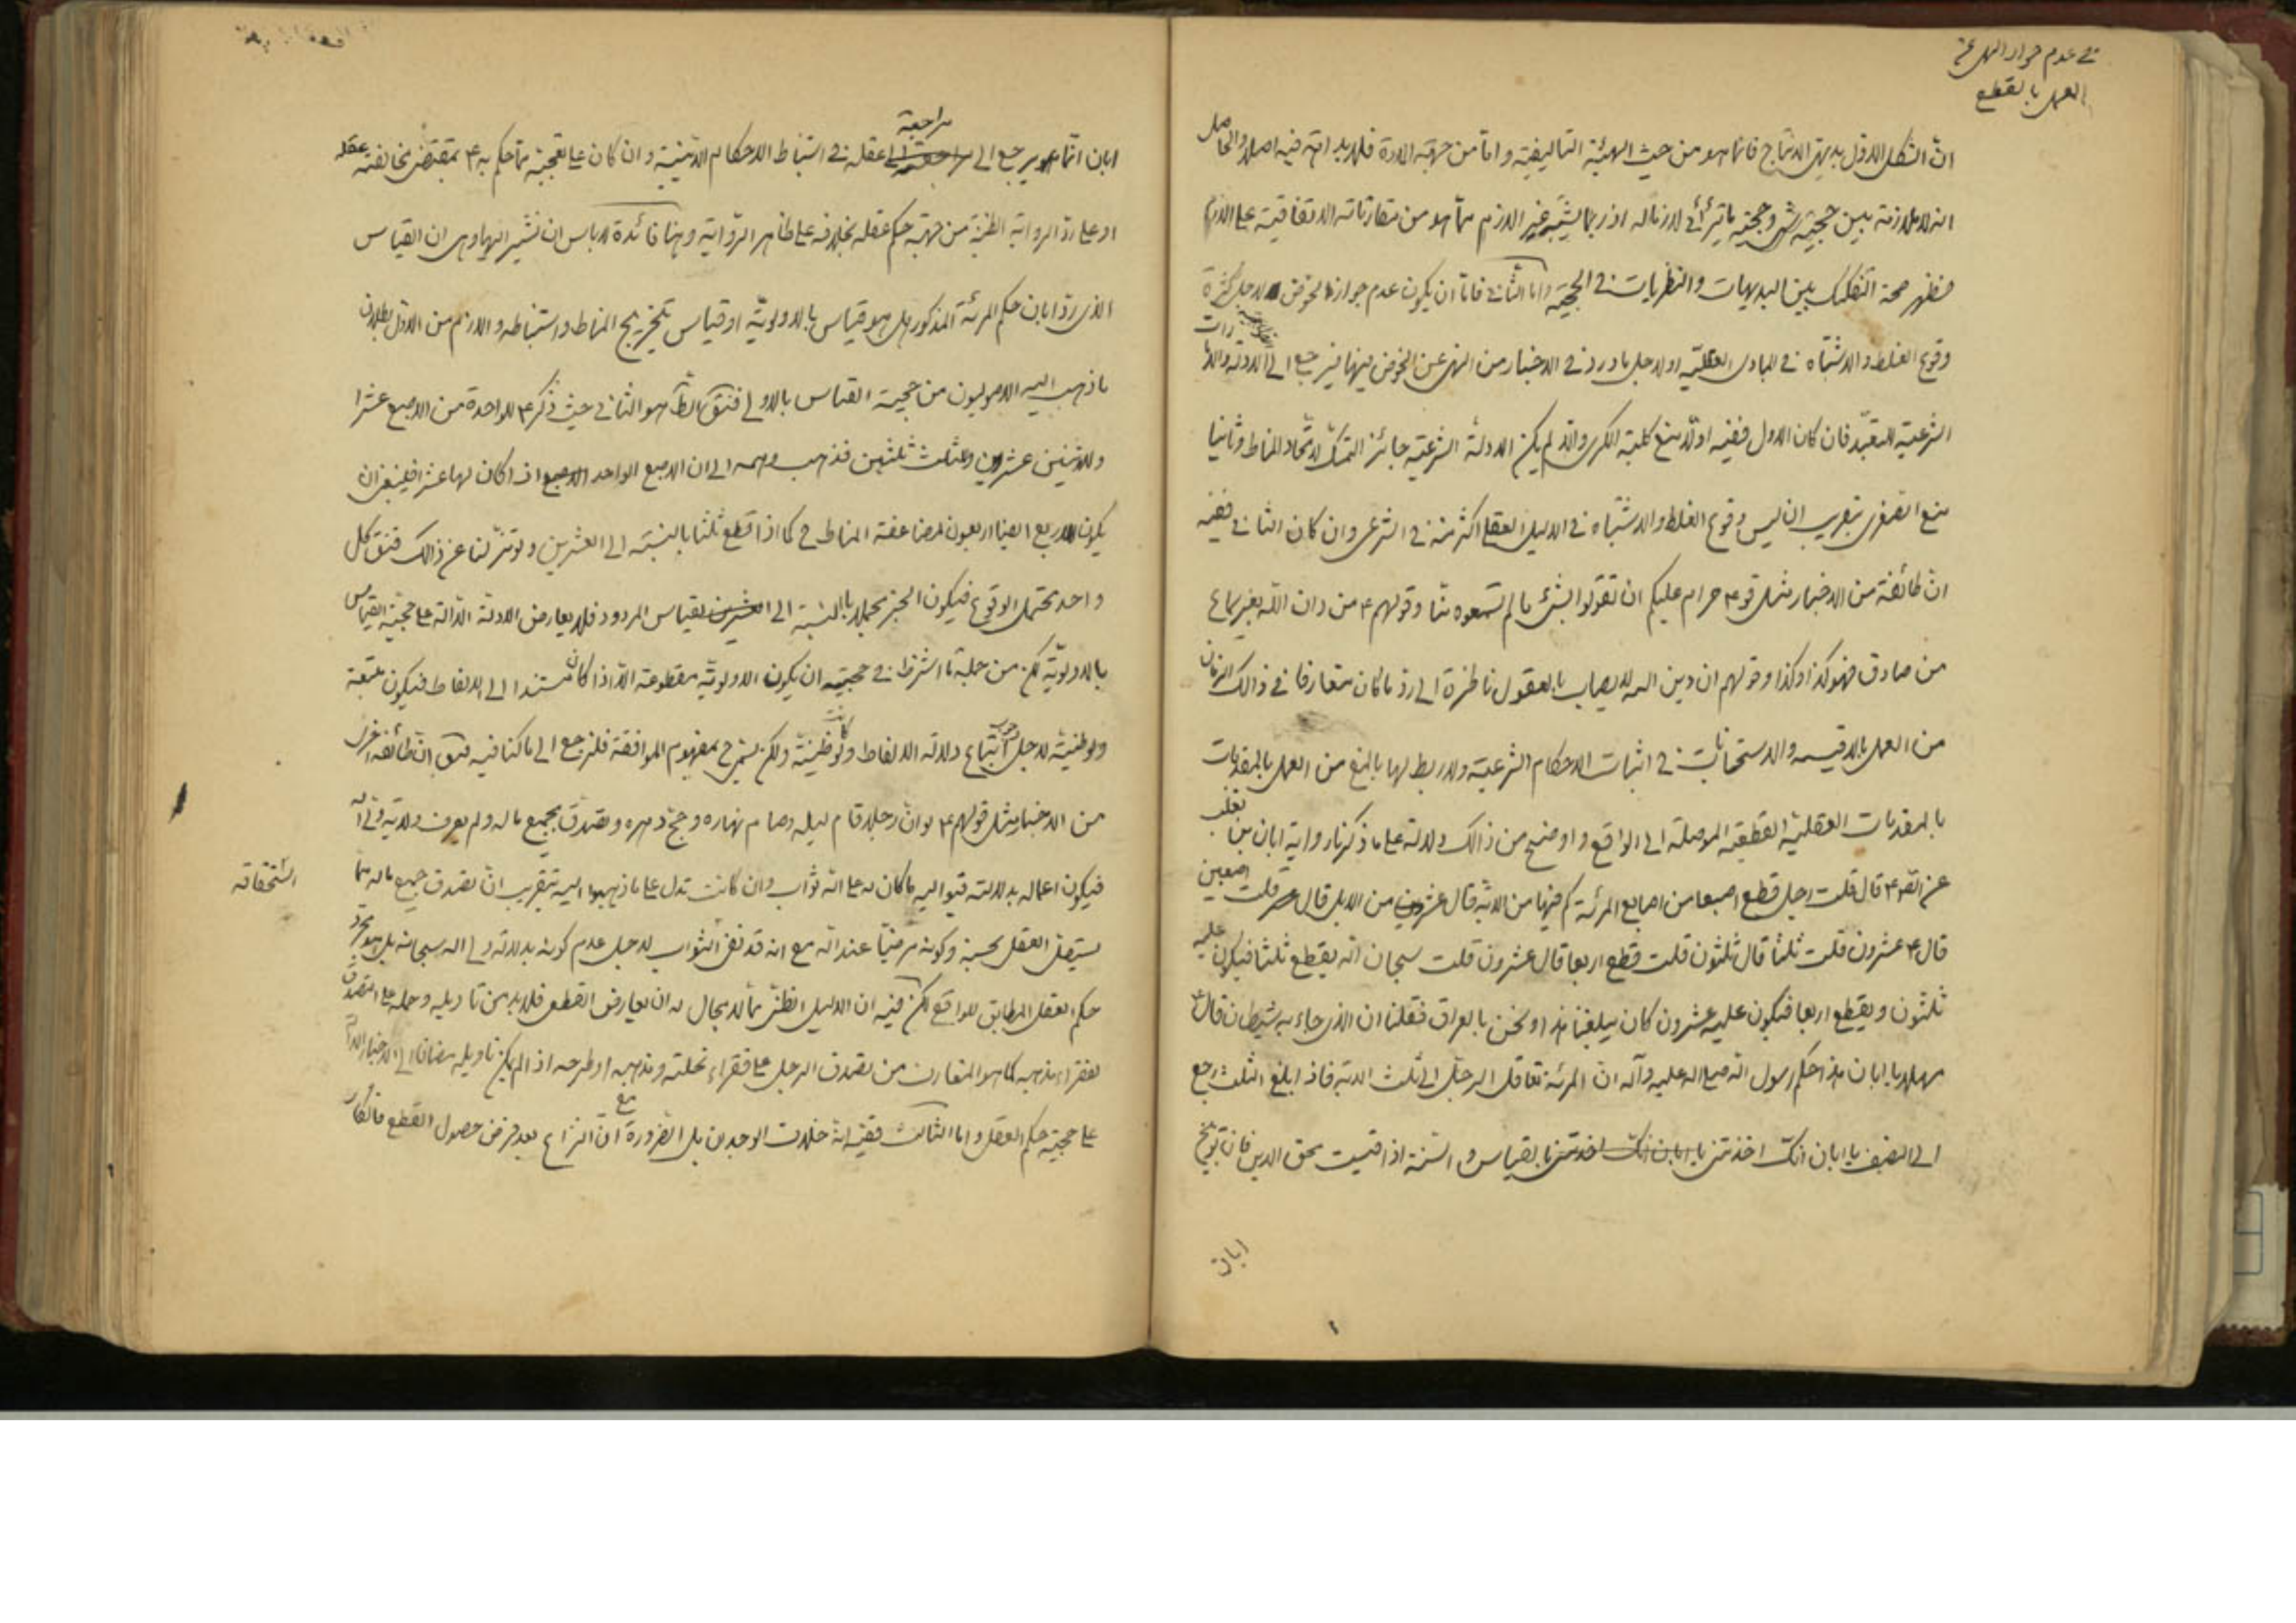 في عدم جواز النهي عن
العمل بالقطع
انّ الشكل الاول بديهيّ الانتاج فانما هو من حيث الهيئة التأليفيّة وامّا من جهة المادة فلا بداهة فيه اصلا والحاصل
انه لا ملازمة بين حجيّة شئ وحجية ما يترائى لازما له اذ ربما يشتبه غير اللازم ممّا هو من مقارناته الاتفاقية على اللازم
فظهر صحة التفكيك بين البديهيات والنظريات في الحجيّة وامّا الثاني فامّا ان يكون عدم جواز الخوض لاجل كثرة
وقوع الغلط والاشتباه في المبادى العقليّة او لاجل ما ورد في الاخبار من النهى عن الخوض فيها فيرجع الى الادلة
الشرعية للتعبّد فان كان الاول ففيه اولا منع كلية الكبرى والّا لم يكن الادلّة الشرعية جائز التمسّك لاتّحاد المناط وثانيا
منع الصغرى بتقريب ان ليس وقوع الغلط والاشتباه في الدليل العقلي اكثر منه في الشرعى وان كان الثاني ففيه
انّ طائفة من الاخبار مثل قوله ع حرام عليكم ان تقولوا بشئ ما لم تسمعوه منّا وقولهم ع من دان اللّه بغير سماع
من صادق فهو كذا وكذا وقولهم ان دين اللّه لا يصاب بالعقول ناظرة الى ردّ ما كان متعارفا في ذالك الزمان
من العمل بالاقيسه والاستحسانات في اثبات الاحكام الشرعية ولا ربط لها بالمنع من العمل بالمقدمات
بالمقدمات العقليّة القطعية الموصلة الى الواقع واوضح من ذالك دلالة على ما ذكرنا رواية ابان بن تغلب
عن الصّ ع قال قلت رجل قطع اصبعا من اصابع المرئة كم فيها من الدية قال عشر من الابل قال قلت اصبعين
قال ع عشرون قلت ثلثا قال ثلثون قلت قطع اربعا قال عشرون قلت سبحان اللّه يقطع ثلثا فيكون عليه
ثلثون ويقطع اربعا فيكون عليه عشرون كان يبلغنا هذا ونحن بالعراق فقلنا ان الذى جاء به شيطان قال ع
مهلا يا ابان هذا حكم رسول اللّه صلى اللّه عليه وآله انّ المرئة تعاقل الرجل الى ثلث الدية فاذا بلغ الثلث رجع
الى النصف يا ابان انّك اخذتنى يا ابان انّك اخذتنى بالقياس والسّنة اذا قيست محق الدين فانّ توبيخ
ابان
ابان انّما هو يرجع الى مراجعة الى مراجعة عقله في استنباط الاحكام الدّينيّة وان كان على تعجّبه ممّا حكم به ع بمقتضى مخالفته عقله
او على ردّ الرواية الظنيّة من جهة حكم عقله بخلافه على ظاهر الرّواية وهنا فائدة لا باس ان نشير اليها وهى ان القياس
الذى ردّ ابان حكم المرئة المذكور هل هو قياس بالاولويّة او قياس بتخريج المناط واستنباطه واللازم من الاوّل بطلان
ما ذهب اليه الاصوليون من حجيّة القياس بالاولى فنقول الظّ هو الثاني حيث ذكر ع للواحدة من الاصبع عشرا
وللاثنين عشرين وللثلث ثلثين فذهب وهمه الى ان الاصبع الواحد اذا كان لها عشر فينبغى ان
يكون للاربع ايضا اربعون لمضاعفة المناط ح كما اذا قطع ثلثا بالنسبة الى العشرين ولو تنزّلنا عن ذالك فنقول كل
واحد محتمل الوقوع فيكون الخبر مجملا بالنسبة الى القياس المردود فلا يعارض الادلّة الدّالة على حجيّة القياس
بالاولويّة لكن من جملة ما اشترط في حجيّته ان يكون الاولويّة مقطوعة الّا اذا كان مستندا الى الالفاظ فيكون متّبعة
ولو ظنيّة لاجل اتّباع دلالة الالفاظ ولو كانت ظنيّة ولكن يسمّى ح بمفهوم الموافقة فلنرجع الى ما كنا فيه فنقول انّ طائفة اخرى
من الاخبار مثل قولهم ع لو انّ رجلا قام ليله وصام نهاره وحجّ دهره وتصدّق بجميع ماله ولم يعرف ولاية ولىّ اللّه
فيكون اعماله بدلالته فيواليه ما كان له على اللّه ثواب وان كانت تدل على ما ذهبوا اليه بتقريب انّ تصدق جميع ماله ممّا
استحقاقه
يستقلّ العقل بحسنه وكونه مرضيّا عند اللّه مع انه قد نفى الثواب لاجل عدم كونه بدلالة ولى اللّه سبحانه بل بمجرّد
حكم العقل المطابق للواقع لكن فيه ان الدليل الظنّى ممّا لا مجال له ان يعارض القطع فلا بد من تاويله وحمله على التصدّق
لفقراء مذهبه كما هو المتعارف من تصدق الرجل على فقراء نحلته ومذهبه او طرحه اذا لم يكن تاويله مضافا الى الاخبار الدالّة
على حجيّة حكم العقل وامّا الثالث ففيه انّه خلاف الوجدان بل الضّرورة مع انّ النزاع بعد فرض حصول القطع فانكار